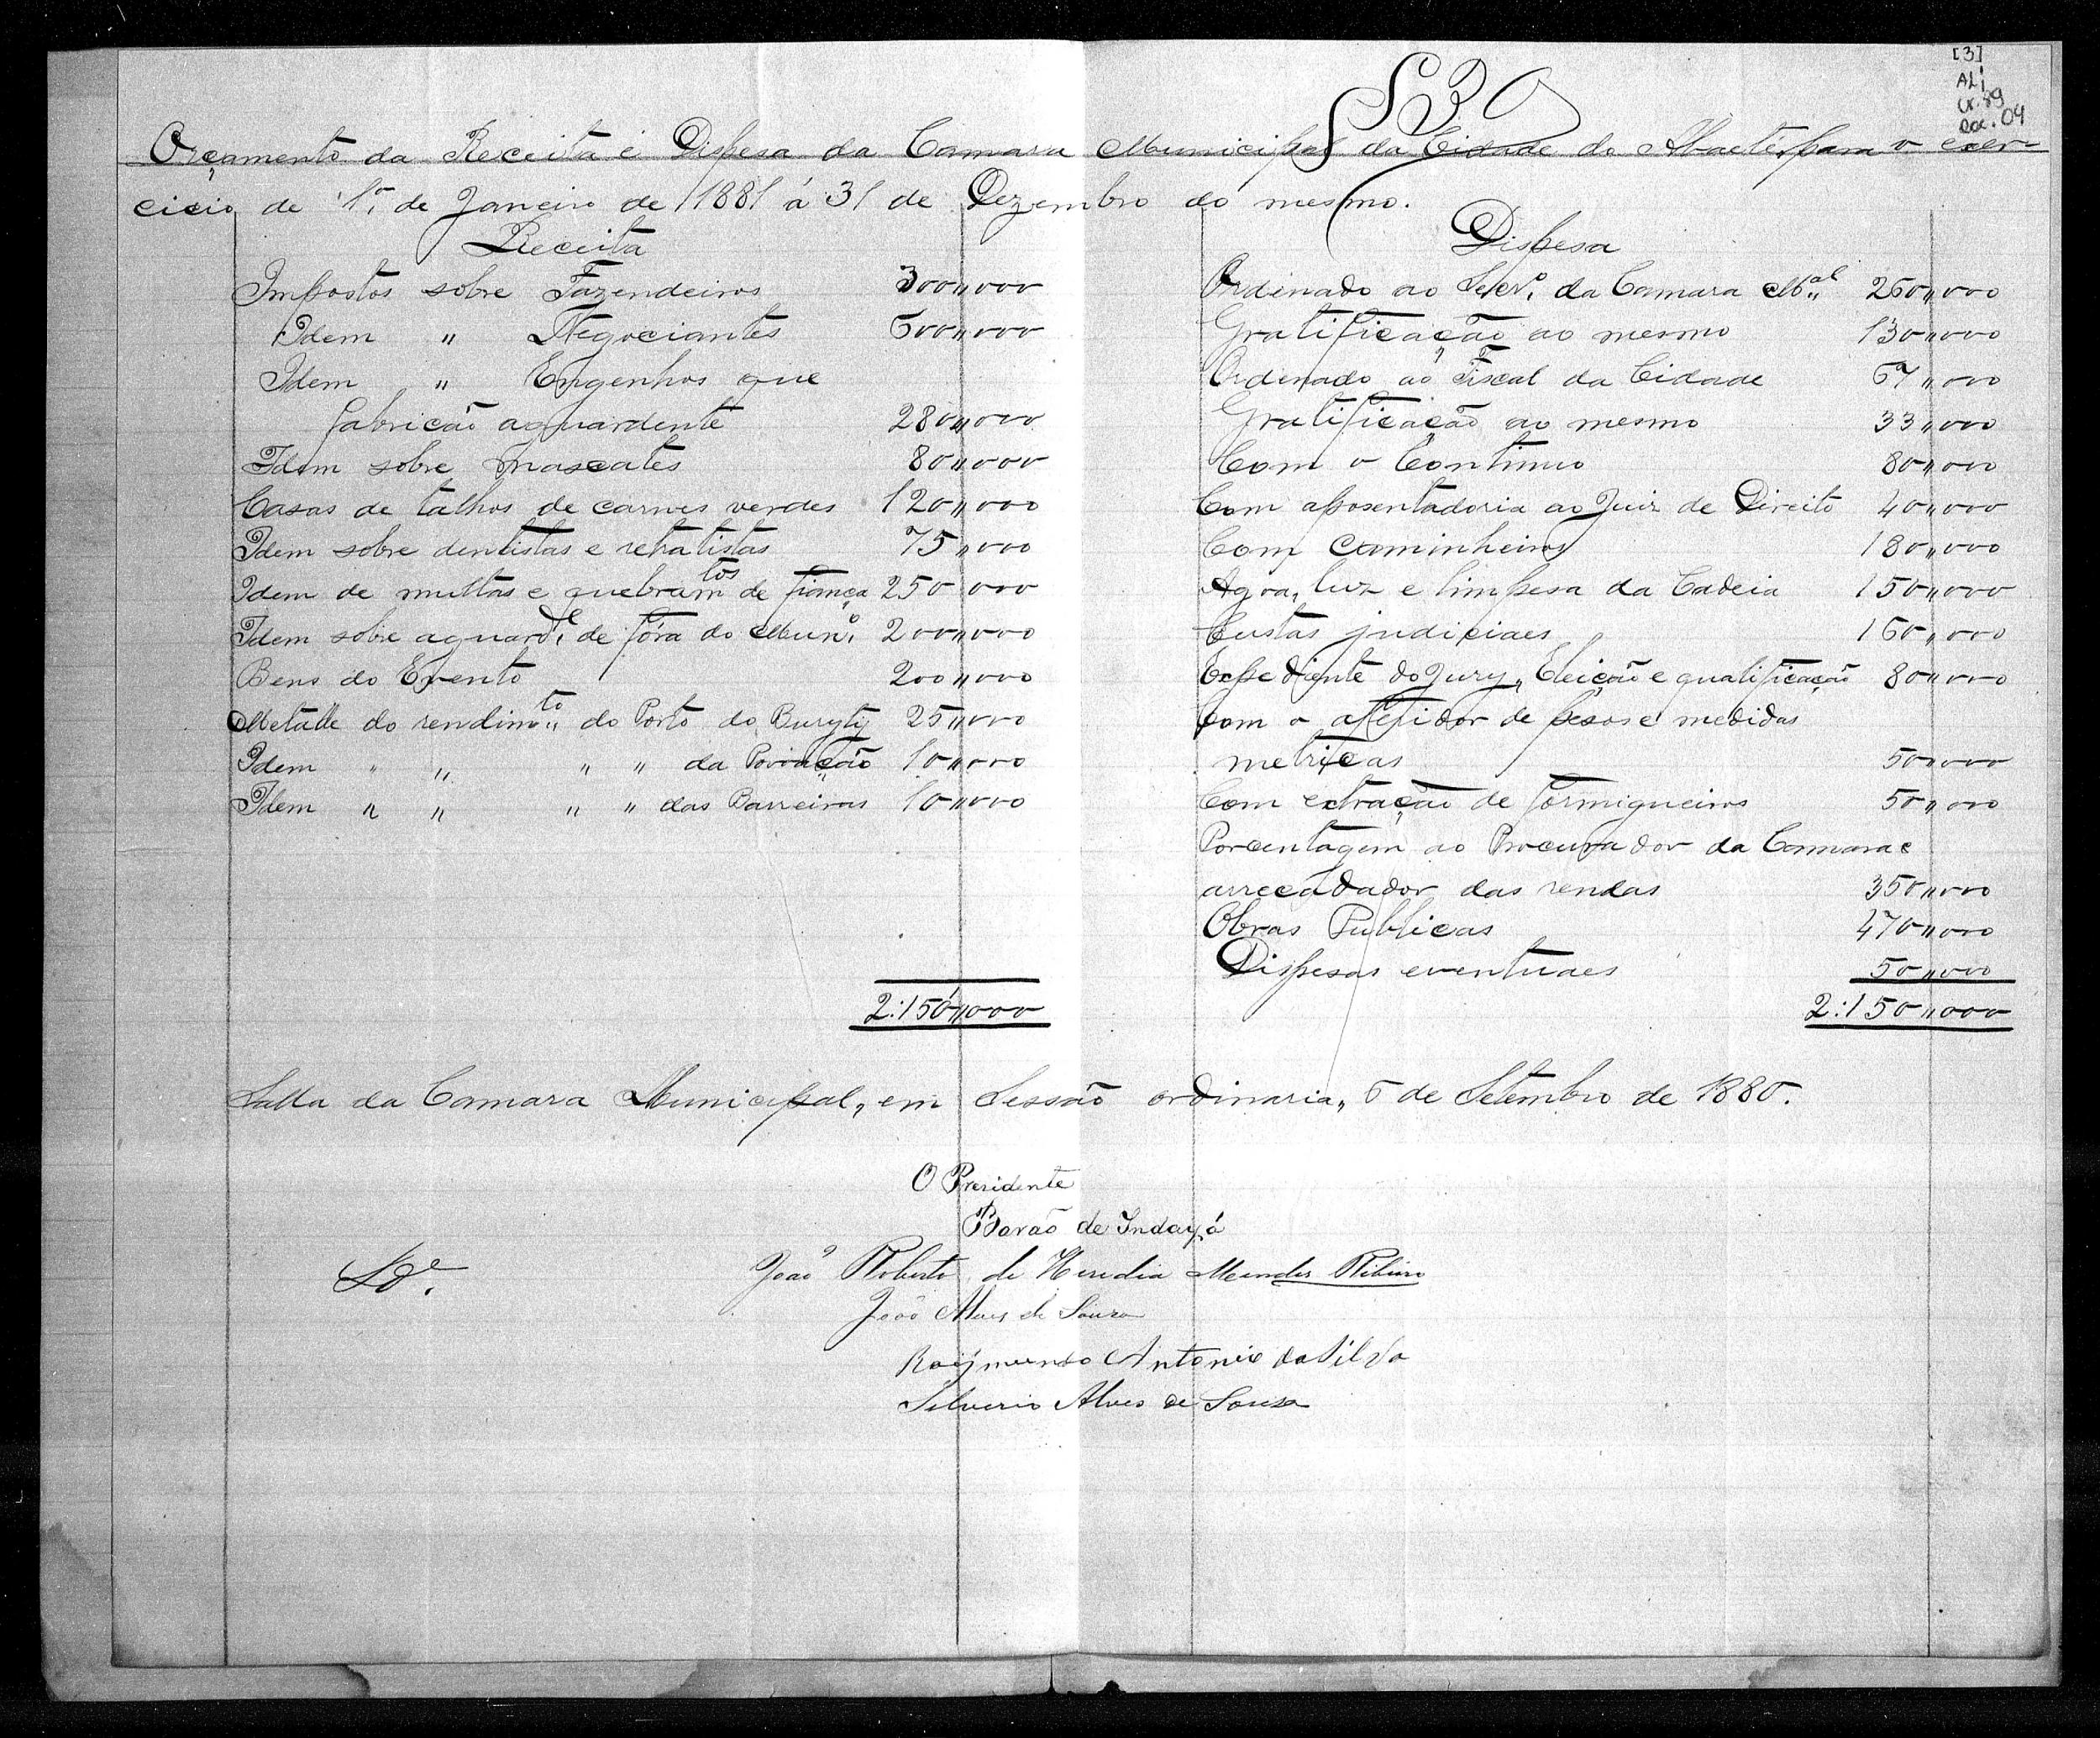 [3]
AL1
Cx. 89
Doc. 04
S 3 O
Orçamento da Receita e Dispesa da Camara Municipal da Cidade do Abaete, para o exer-
cicio de 1º de Janeiro de 1881 á 31 de Dezembro do mesmo.
Receita
Impostos sobre Fazendeiros 300,,000
Idem " Negociantes 600,,000
Idem " Engenhos que
fabricão aguardente 280,,000
Idem sobre mascates 80,,000
Casas de talhos de carnes verdes 120,,000
Idem sobre dentistas e retratistas 75,,000
Idem de multas e quebramtos de fiança 250,000
Idem sobre aguarde de fóra do Muno 200,,000
Bens do Evento 200,,000
Metade do rendimto do Porto do Buryty 25,,000
Idem " " " " da Povoação 10,,000
Idem " " " " das Barreiras 10,,000
2:150,,000
Dispesa
Ordinado ao Secro da Camara Mal 260,,000
Gratificação ao mesmo 130,,000
Ordenado ao Fiscal da Cidade 67,,000
Gratificação ao mesmo 33,,000
Com o Continuo 80,,000
Com aposentadoria ao Juiz de Direito 40,,000
Com Caminheiros 180,,000
Agoa, luz e limpesa da Cadeia 150,,000
Custas judiciaes 160,,000
Expediente do Jury, Eleição e qualificação 80,,000
Com o affiridor de pesos e medidas
metricas 50,,000
Com extração de formigueiros 50,,000
Porcentagem ao Procurador da Camara e
arrecadador das rendas 350,,000
Obras Publicas 470,,000
Dispesas eventuaes 50,,000
2:150,,000
Salla da Camara Municipal, em Sessão ordinaria, 6 de Setembro de 1880.
O Presidente
Barão de Indayá
João Roberto de Heredia Mendes Ribeiro
João Alves de Souza
Raÿmundo Antonio da Silva
Silverio Alves de Sousa